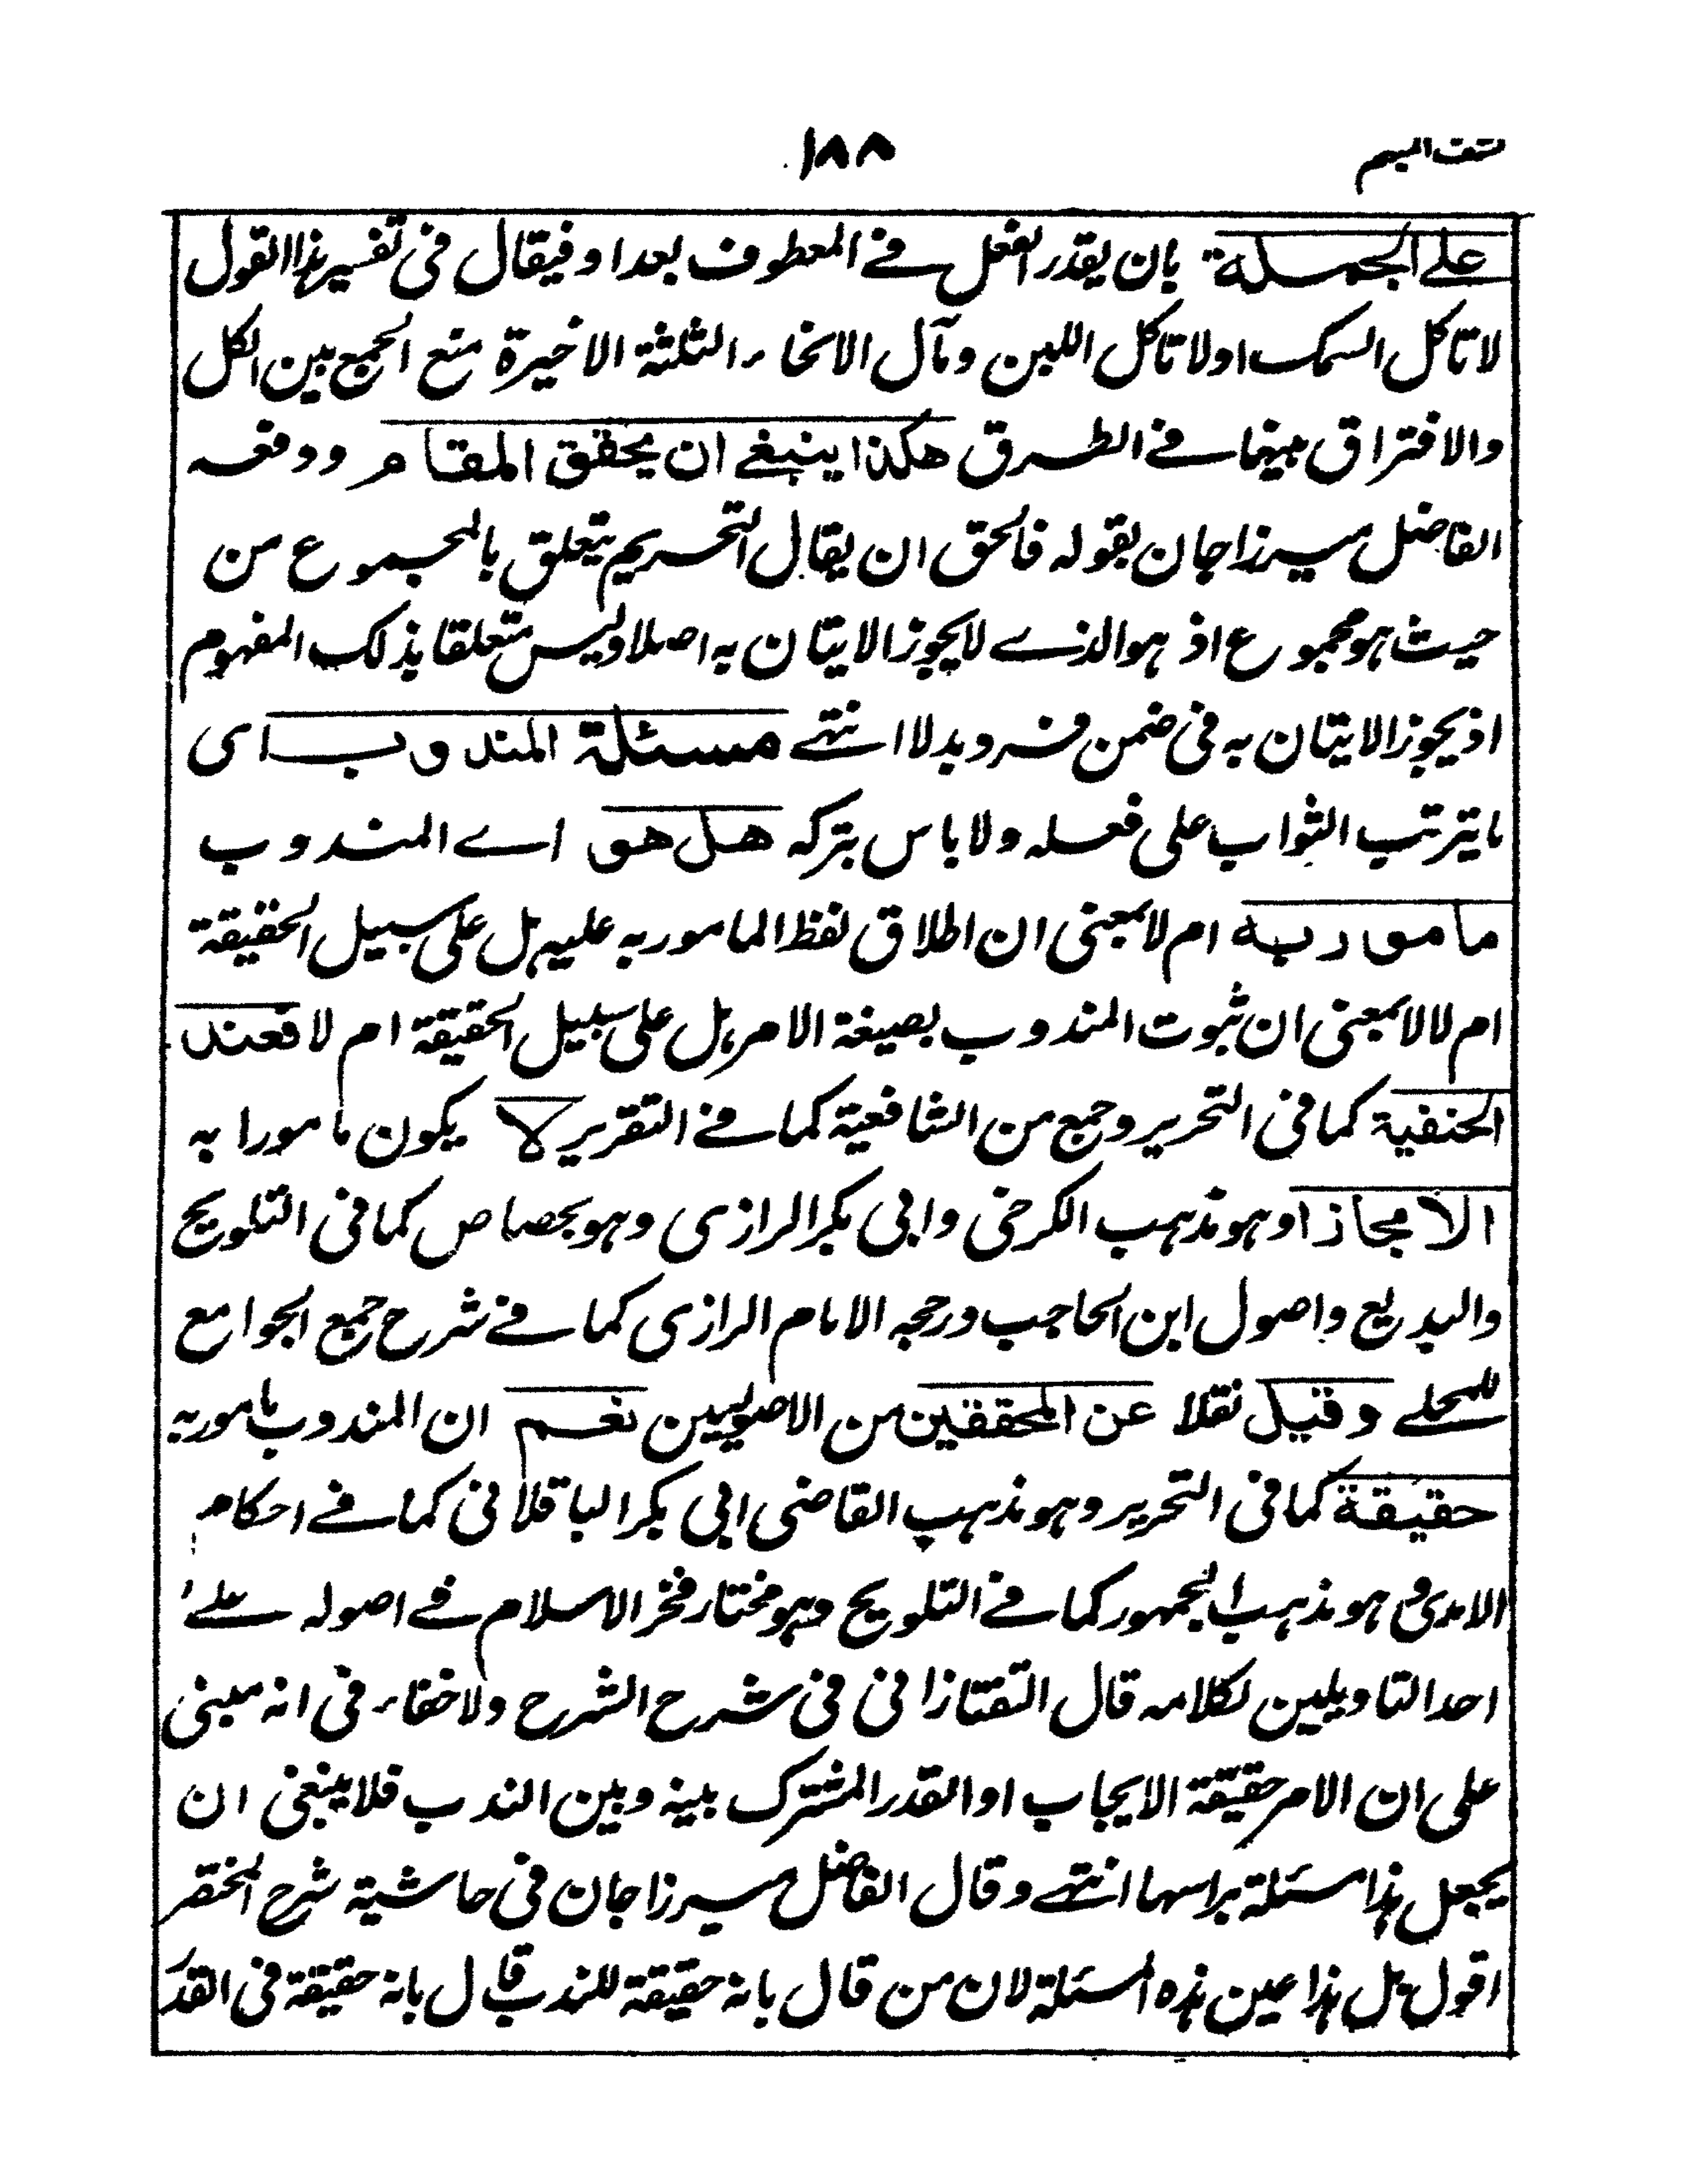 كشف المبهم
١٨٨
على الجملة بان يقدر الفعل في المعطوف بعد او فيقال في تفسير هذا القول
لا تاكل السمك او لا تاكل اللبن ومآل الانحاء الثلثة الاخيرة منع الجمع بين الكل
والافتراق بينها في الطرق هكذا ينبغي ان يحقق المقام ودفعه
الفاضل ميرزاجان بقوله فالحق ان يقال التحريم يتعلق بالمجموع من
حيث هو مجموع اذ هو الذي لا يجوز الايتان به اصلا وليس متعلقا بذلك المفهوم
اذ يجوز الايتان به في ضمن فرد بدلا انتهى مسئلة المندوب اى
ما يترتب الثواب على فعله ولا باس بتركه هل هو اي المندوب
مامور به ام لا بمعنى ان اطلاق لفظ المامور به عليه هل على سبيل الحقيقة
ام لا لا بمعنى ان ثبوت المندوب بصيغة الامر هل على سبيل الحقيقة ام لا فعند
الحنفية كما في التحرير وجمع من الشافعية كما في التقرير لا يكون مامورا به
الا مجازا وهو مذهب الكرخى وابى بكر الرازى وهو بجصاص كما فى التلويح
والبديع واصول ابن الحاجب ورجحه الامام الرازى كما في شرح جمع الجوامع
للمحلي وقيل نقلا عن المحققين من الاصوليين نعم ان المندوب مامور به
حقيقة كما في التحرير وهو مذهب القاضى ابى بكر الباقلانى كما في احكام
الامدى وهو مذهب الجمهور كما في التلويح وهو مختار فخر الاسلام في اصوله على
احد التاويلين لكلامه قال التفتازانى فى شرح الشرح ولا خفاء فى انه مبنى
على ان الامر حقيقة الايجاب او القدر المشترك بينه وبين الندب فلا ينبغى ان
يجعل هذا مسئلة براسها انتهى وقال الفاضل ميرزاجان فى حاشية شرح المختصر
اقول بل هذا عين هذه المسئلة لان من قال بانه حقيقة للندب قال بانه حقيقة فى القدر